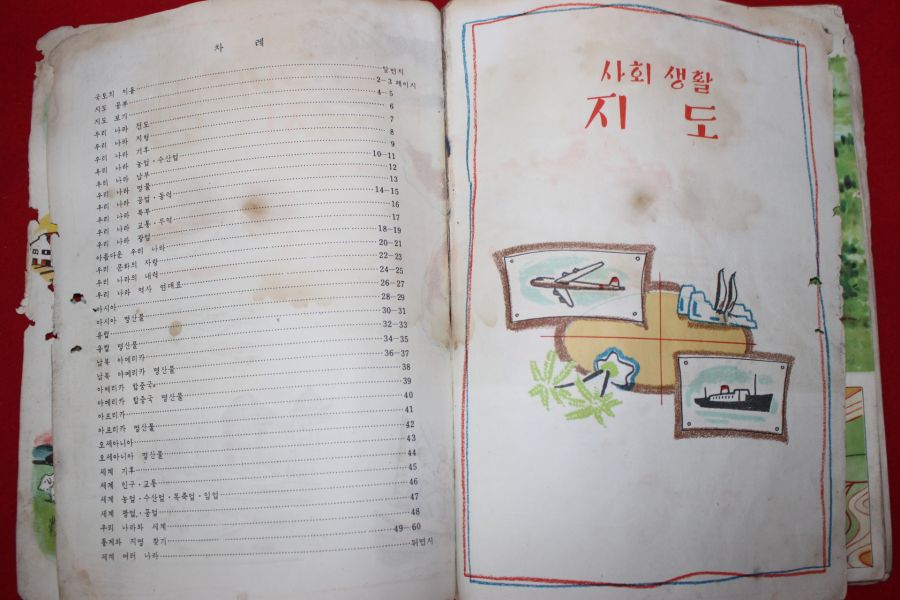 차 례
국토의 이용 앞면지
지도 공부 2—3 페이지
지도 보기 4—5
우리 나라 전도 6
우리 나라 지형 7
우리 나라 기후 8
우리 나라 농업·수산업 9
우리 나라 남부 10—11
우리 나라 명물 12
우리 나라 공업·동력 13
우리 나라 북부 14—15
우리 나라 교통·무역 16
우리 나라 광업 17
아름다운 우리 나라 18—19
우리 문화의 자랑 20—21
우리 나라의 내력 22—23
우리 나라 역사 연대표 24—25
아시아 26—27
아시아 명산물 28—29
유럽 30—31
유럽 명산물 32—33
남북 아메리카 34—35
남북 아메리카 명산물 36—37
아메리카 합중국 38
아메리카 합중국 명산물 39
아프리카 40
아프리카 명산물 41
오세아니아 42
오세아니아 명산물 43
세계 기후 44
세계 인구·교통 45
세계 농업·수산업·목축업·임업 46
세계 광업·공업 47
우리 나라와 세계 48
통계와 지명 찾기 49—60
세계 여러 나라 뒤면지
사회 생활
지 도